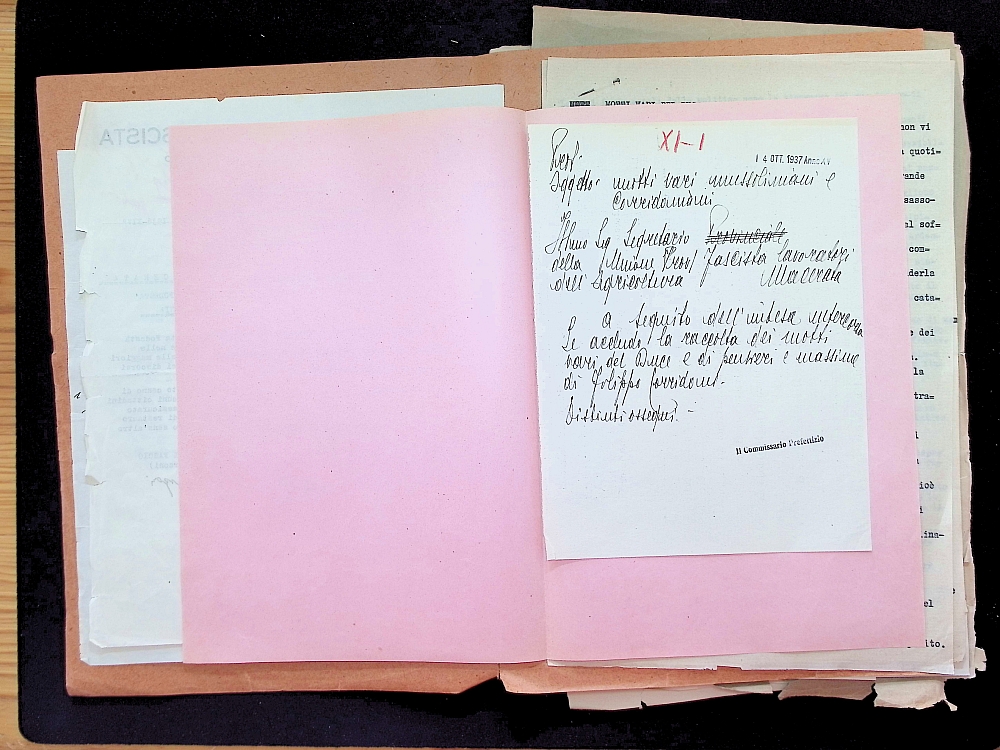 SCISTA
XI-1
14 OTT. 1937 Anno XV
Oggetto: motti vari mussoliniani e
Corridoniani
Illmo Sig Segretario Provinciale
della Unione Prov Fascista lavoratori
dell'Agricoltura Macerata
A seguito dell'intesa intercorsa
Le accludo la raccolta dei motti
vari del Duce e di pensieri e massime
di Filippo Corridoni.
Distinti ossequi.-
Il Commissario Prefettizio
MOTTI VARI DEL
non vi
quoti=
ande
sasso-
el sof=
com=
derla
cata=
e dei
la
tra=
ioè
ina-
el
ito.